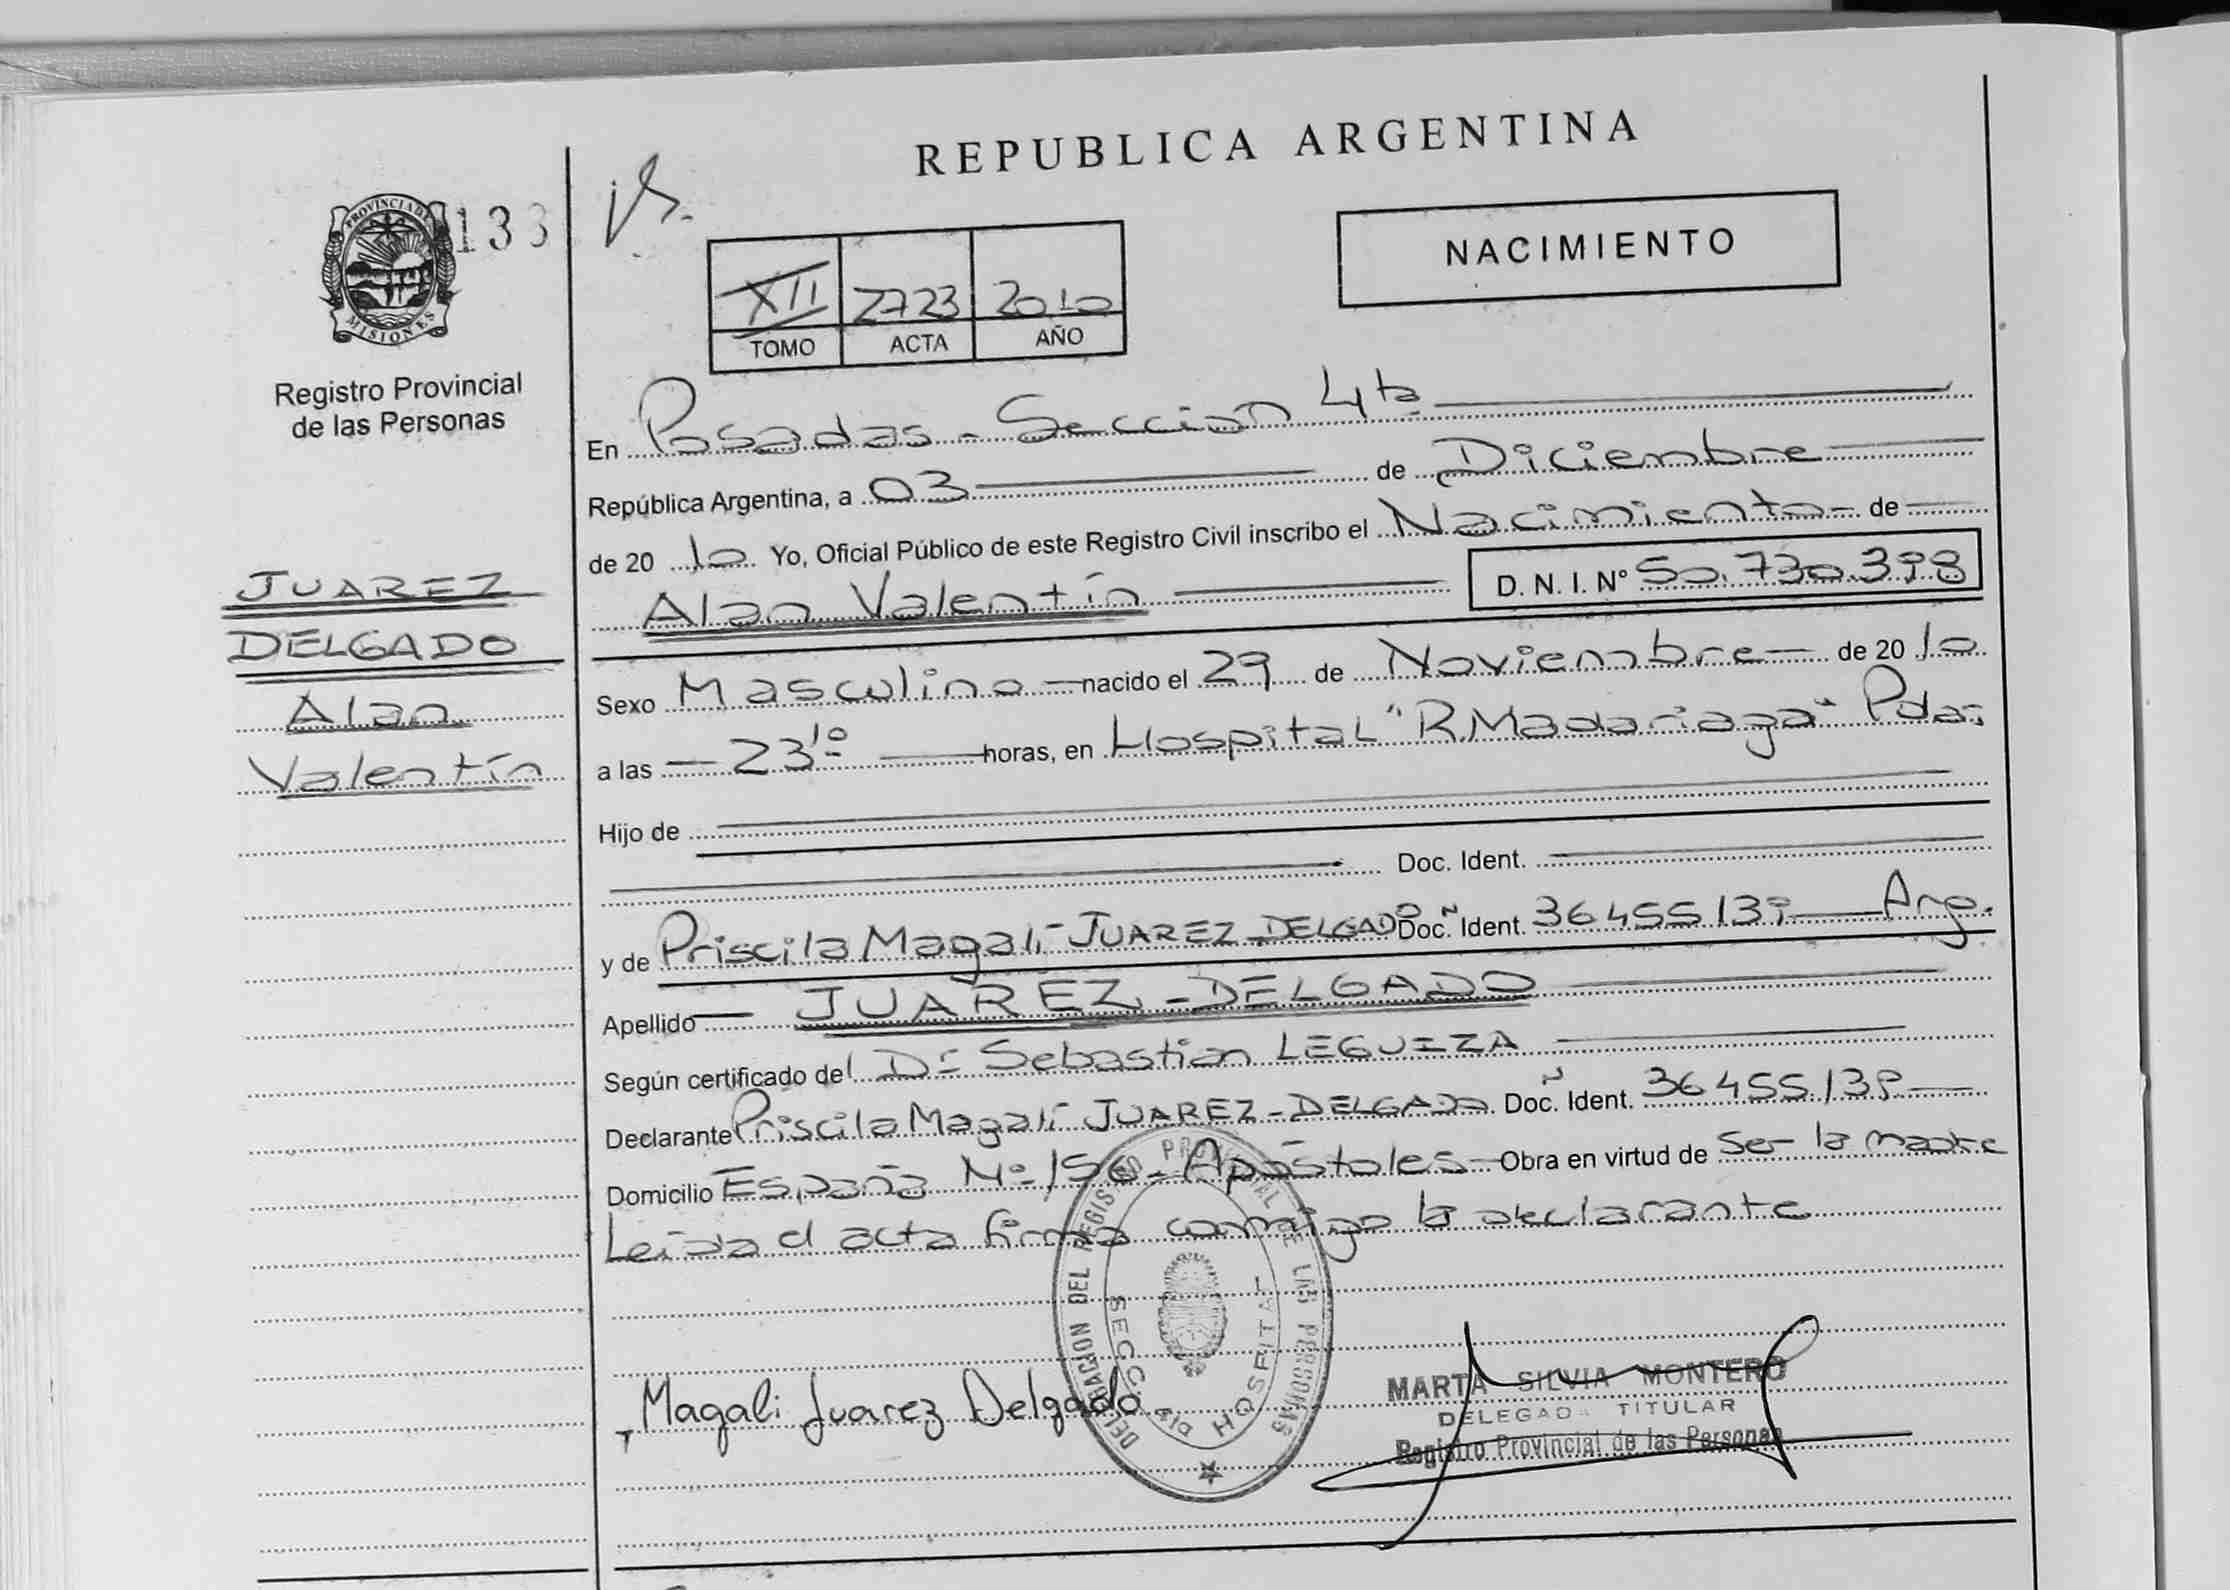 REPUBLICA ARGENTINA
PROVINCIA DE
MISIONES
133
NACIMIENTO
XII 2723 2010
TOMO ACTA AÑO
Registro Provincial
de las Personas
JUAREZ
DELGADO
Alan
Valentín
En Posadas - Seccion 4ta
República Argentina, a 03 de Diciembre
de 2010 Yo, Oficial Público de este Registro Civil inscribo el Nacimiento de
Alan Valentín D. N. I. Nº 50.730.398
Sexo Masculino nacido el 29 de Noviembre de 2010
a las 23 10 horas, en Hospital "R. Madariaga" Pdas.
Hijo de
Doc. Ident.
y de Priscila Magalí JUAREZ DELGADO Doc. Ident. 36455139 Arg.
Apellido JUAREZ - DELGADO
Según certificado del Dr Sebastian LEGUIZA
Declarante Priscila Magalí JUAREZ - DELGADO Doc. Ident. 36455139
Domicilio España Nº 156 - Apóstoles - Obra en virtud de Ser la madre
Leida el acta firma conmigo la declarante
DELEGACION DEL REGISTRO PROVINCIAL DE LAS PERSONAS
SECC. 4ta HOSPITAL
Magali Juarez Delgado
MARTA SILVIA MONTERO
DELEGADA TITULAR
Registro Provincial de las Personas